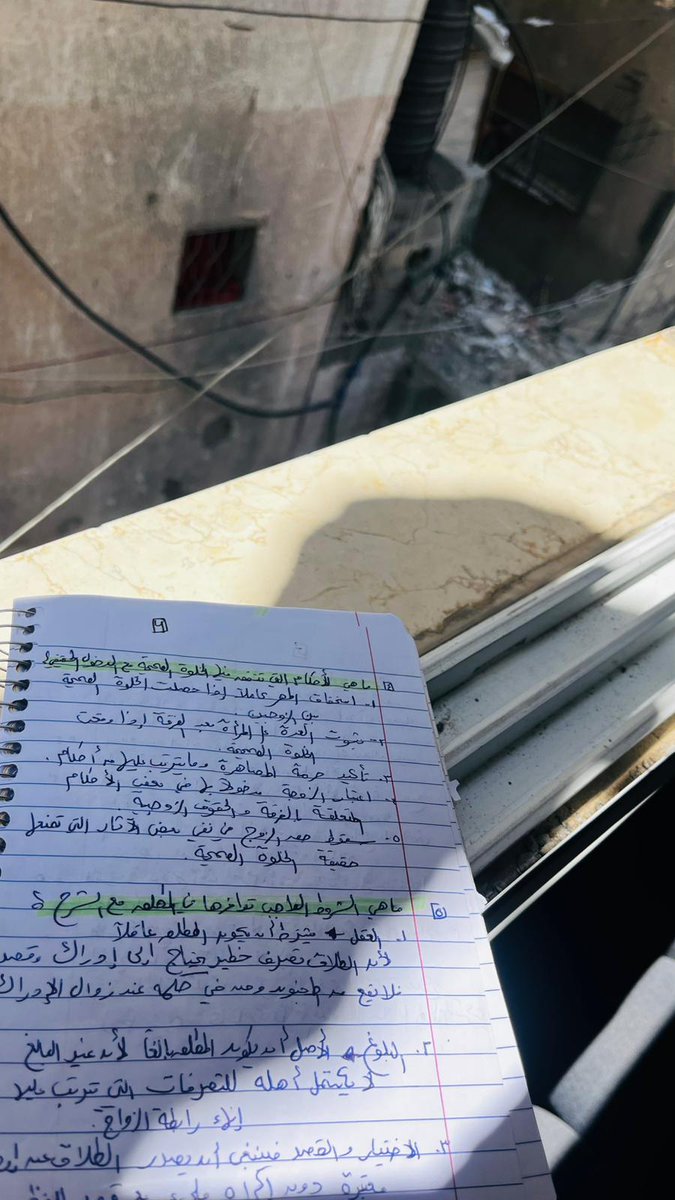 ما هي الأحكام التي تتفق فيها الخلوة الصحيحة مع الدخول الحقيقي؟
١. استحقاق المهر كاملاً إذا حصلت الخلوة الصحيحة
بين الزوجين.
٢. ثبوت العدة على المرأة بعد الفرقة إذا وقعت
الخلوة الصحيحة.
٣. تأكيد حرمة المصاهرة وما يترتب عليها من أحكام.
٤. اعتبار الزوجة مدخولاً بها في بعض الأحكام
المتعلقة بالفرقة والحقوق الزوجية.
٥. سقوط حق الزوج في نفي بعض الآثار التي
حقيقة الخلوة الصحيحة.
٥ ما هي الشروط الواجب توافرها في المطلق مع الشرح؟
١. العقل يشترط أن يكون المطلق عاقلاً
لأن الطلاق تصرف خطير يحتاج إلى إدراك وقصد
فلا يقع من المجنون ومن في حكمه عند زوال الإدراك
٢. البلوغ الأصل أن يكون المطلق بالغاً لأن غير البالغ
لا أهلية للتصرفات التي تترتب عليها
إنهاء رابطة الزواج.
٣. الاختيار والقصد فينبغي أن يصدر الطلاق عن
معتبرة دون إكراه